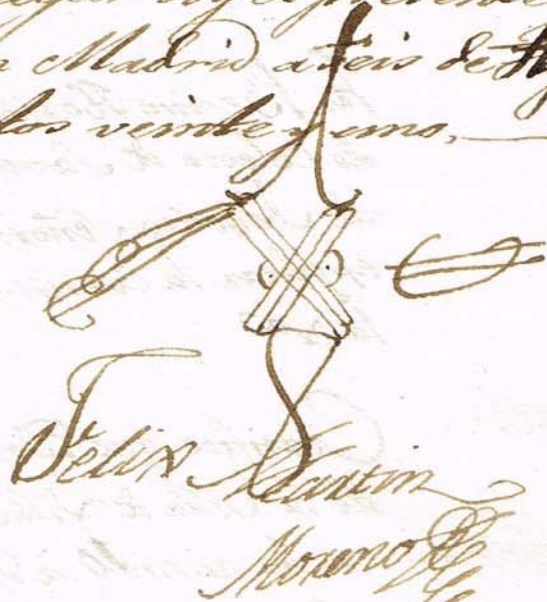 Madrid a seis de
los veinte y uno,
Felix Martin
Moreno